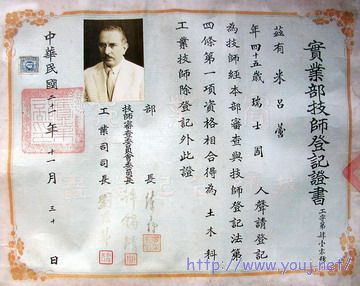 實業部技師登記證書
工字第肆
茲有米呂
年四十五歲瑞士國人聲請登記
為技師經本部審查與技師登記法第
四條第一項資格相合得為土木科
工業技師除登記外此證
部長陳
技師審查委員會委員長許
工業司司長劉
中華民國 年十一月三十日
http://www.youj.net/